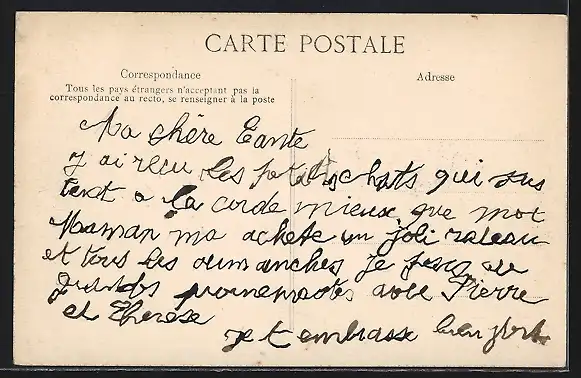 CARTE POSTALE
Correspondance
Adresse
Tous les pays étrangers n'acceptant pas la
correspondance au recto, se renseigner à la poste
Ma chère Tante
J ai reçu les petits chats qui sau
tent a la corde mieux que moi
Maman ma acheté un joli rateau
et tous les dimanches je fais de
grandes promenades avec Pierre
et Therese
je t embrasse bien fort